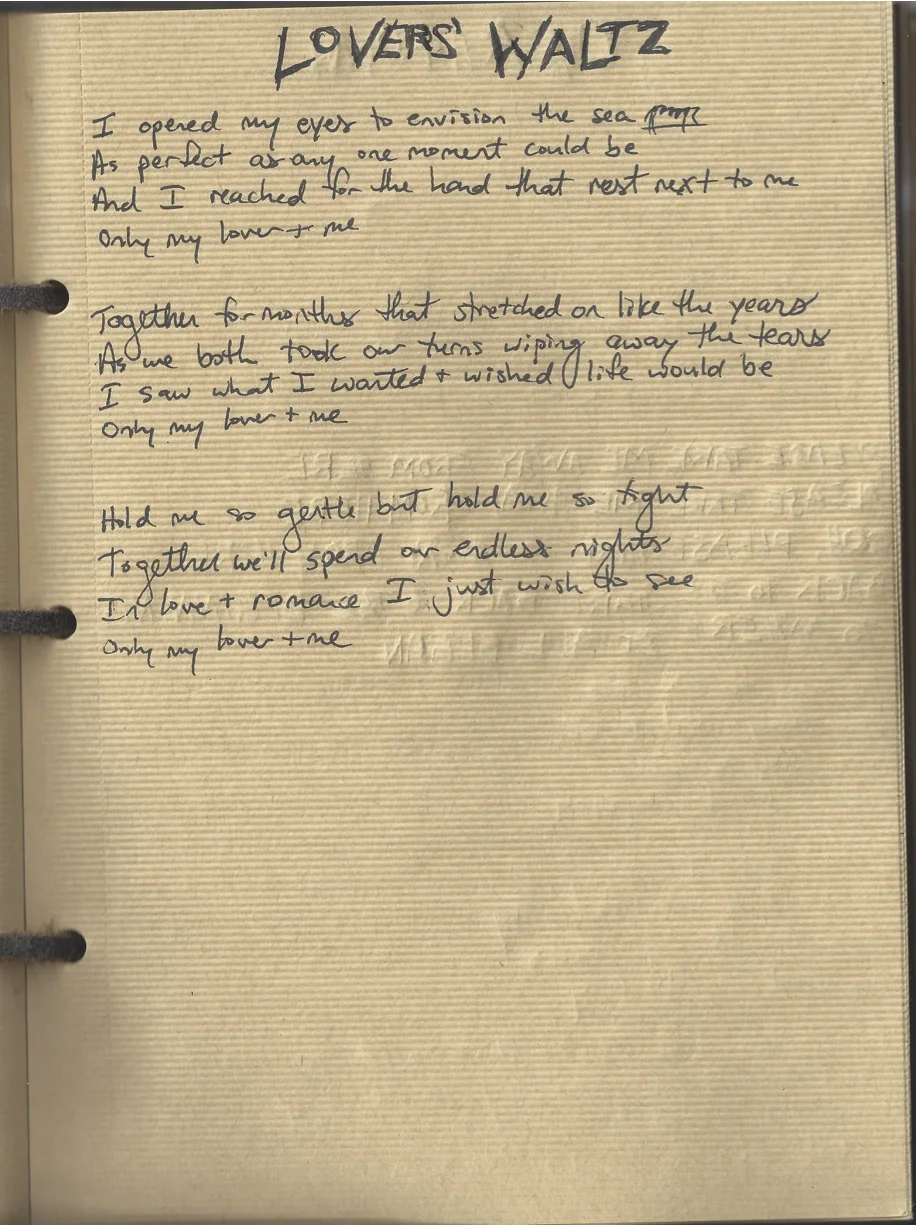 LOVERS' WALTZ
I opened my eyes to envision the sea
As perfect as any one moment could be
And I reached for the hand that rest next to me
Only my lover + me
Together for months that stretched on like the years
As we both took our turns wiping away the tears
I saw what I wanted + wished life would be
Only my lover + me
Hold me so gentle but hold me so tight
Together we'll spend our endless nights
In love + romance I just wish to see
Only my lover + me